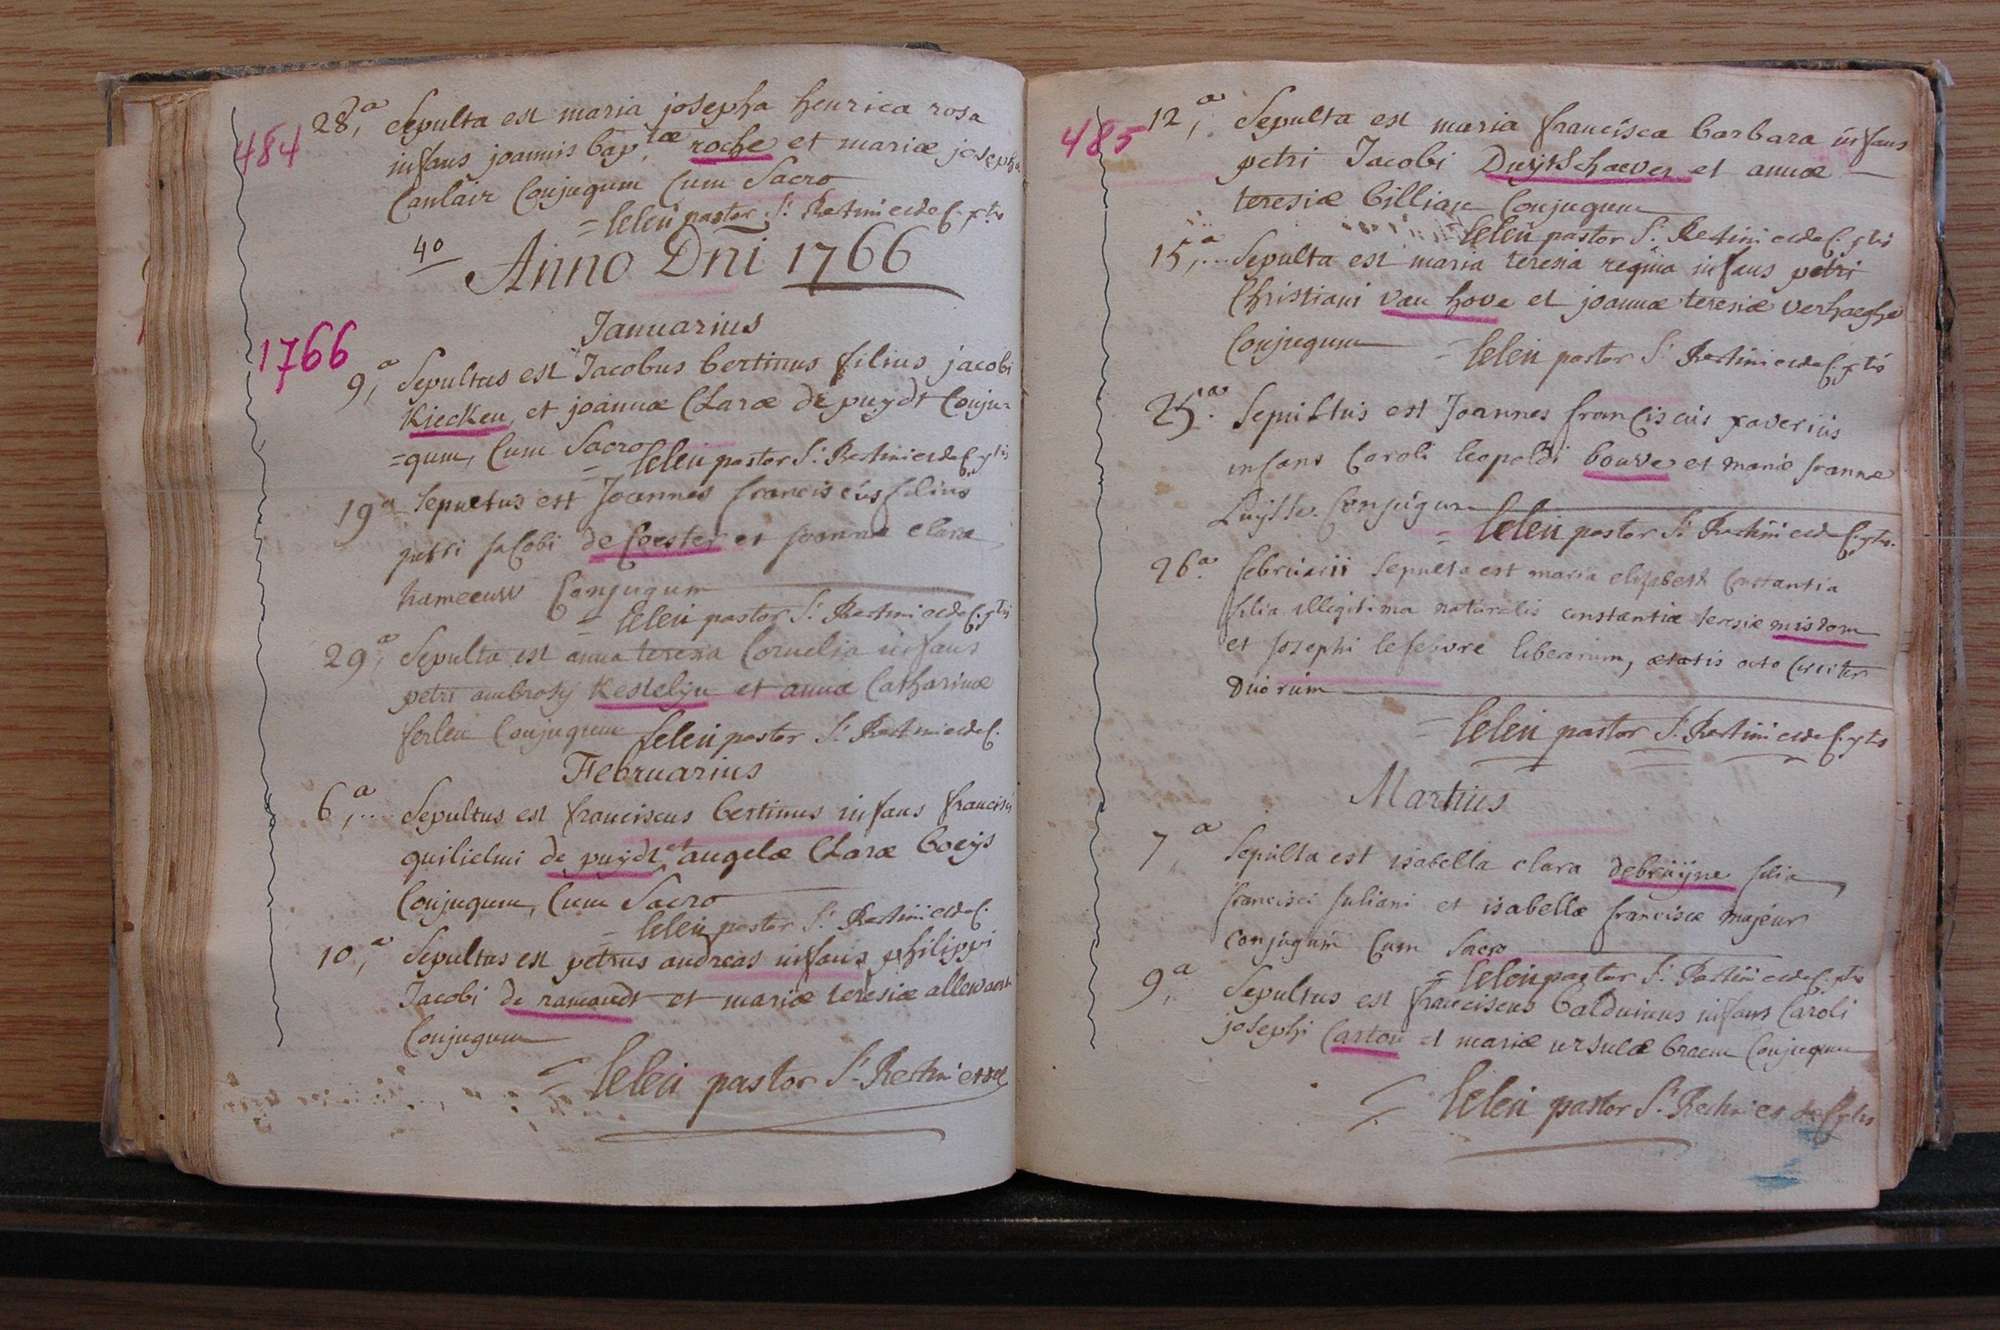 484
28,a Sepulta est maria josepha henrica rosa
infans joannis bap,tæ roche et mariæ josephæ
Canlair Conjugum Cum Sacro
= Leleu pastor St.
40
Anno Dñi 1766
1766
Januarius
9,a Sepultus est Jacobus bertinus filius jacobi
Kiecken, et joannæ Claræ de puydt Conju-
=gum, Cum Sacro
= Leleu pastor St.
19a Sepultus est Joannes franciscus filius
petri Jacobi de Coester et Joannæ claræ
hameeuw Conjugum
= Leleu pastor St.
29,a Sepulta est anna teresia Cornelia infans
petri ambrosij Kestelyn et annæ Catharinæ
ferlen Conjugum Leleu pastor St.
Februarius
6,a.... Sepultus est franciscus bertinus infans francisci
guilielmi de puydt et angelæ Claræ boeys
Conjugum, Cum Sacro
= Leleu pastor St.
10,a Sepultus est petrus andreas infans philippi
Jacobi de ramaudt et mariæ teresiæ allewaert
Conjugum
= Leleu pastor St.
485
12,a Sepulta est maria francisca barbara infans
petri Jacobi DuytSchaever et annæ
teresiæ billiau Conjugum
Leleu pastor St.
15,a... Sepulta est maria teresia regina infans petri
Christiani van hove et joannæ teresiæ verhaeghe
Conjugum = Leleu pastor St.
25.a Sepultus est Joannes franciscus xaverius
infans Caroli leopoldi bouve et mariæ Joannæ
Luysse Conjugum
= Leleu pastor St.
26.a februarii Sepulta est maria elisabeth Constantia
filia illegitima naturalis constantiæ teresiæ misdom
et Josephi lefebvre liberorum, ætatis octo circiter
Duorum
= Leleu pastor St.
Martius
7,a Sepulta est isabella clara debruijne filia
francisci Juliani et isabellæ franciscæ majeur
conjugum Cum Sacro
= Leleu pastor St.
9,a Sepultus est franciscus balduinus infans Caroli
josephi Carton et mariæ ursulæ braem Conjugum
= Leleu pastor St.